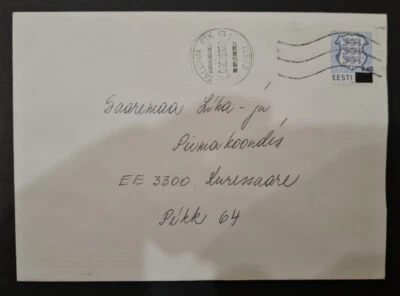 TALLINN
EESTI
Saaremaa Liha- ja
Piimakoondis
EE 3300 Kuressaare
Pikk 64